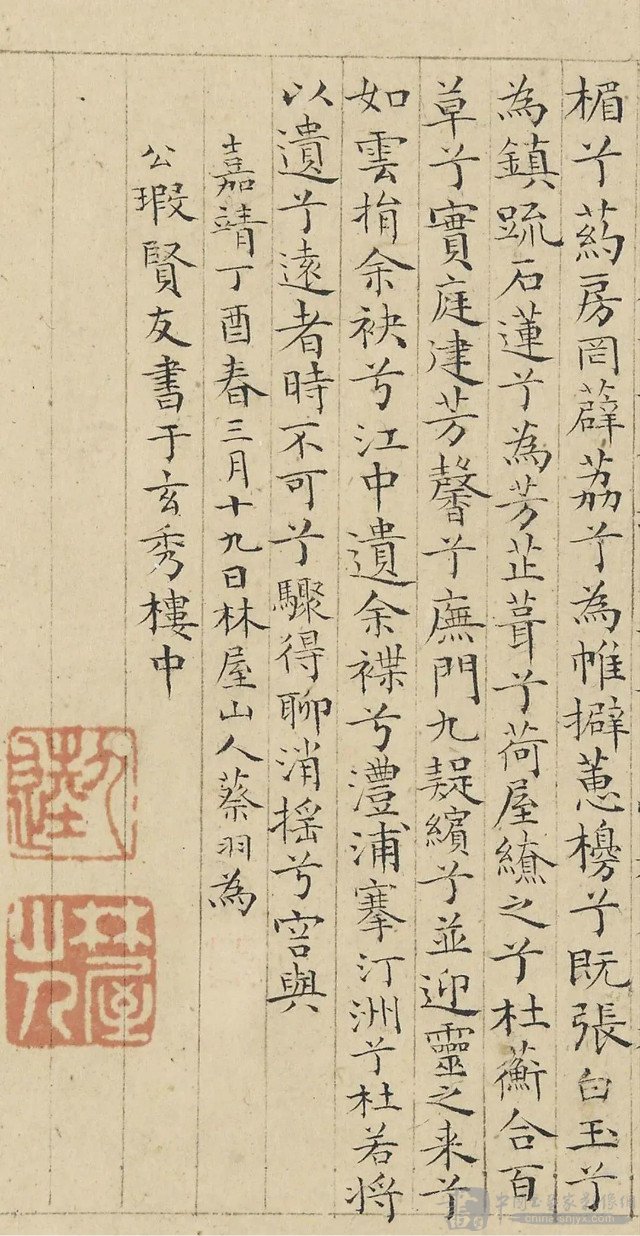 楣兮葯房罔薜荔兮為帷擗蕙櫋兮既張白玉兮
為鎮疏石蓮兮為芳芷葺兮荷屋繚之兮杜蘅合百
草兮實庭建芳馨兮廡門九疑繽兮並迎靈之来兮
如雲捐余袂兮江中遺余褋兮澧浦搴汀洲兮杜若将
以遺兮遠者時不可兮驟得聊消摇兮容與
嘉靖丁酉春三月十九日林屋山人蔡羽為
公瑕賢友書于玄秀樓中
林屋山人